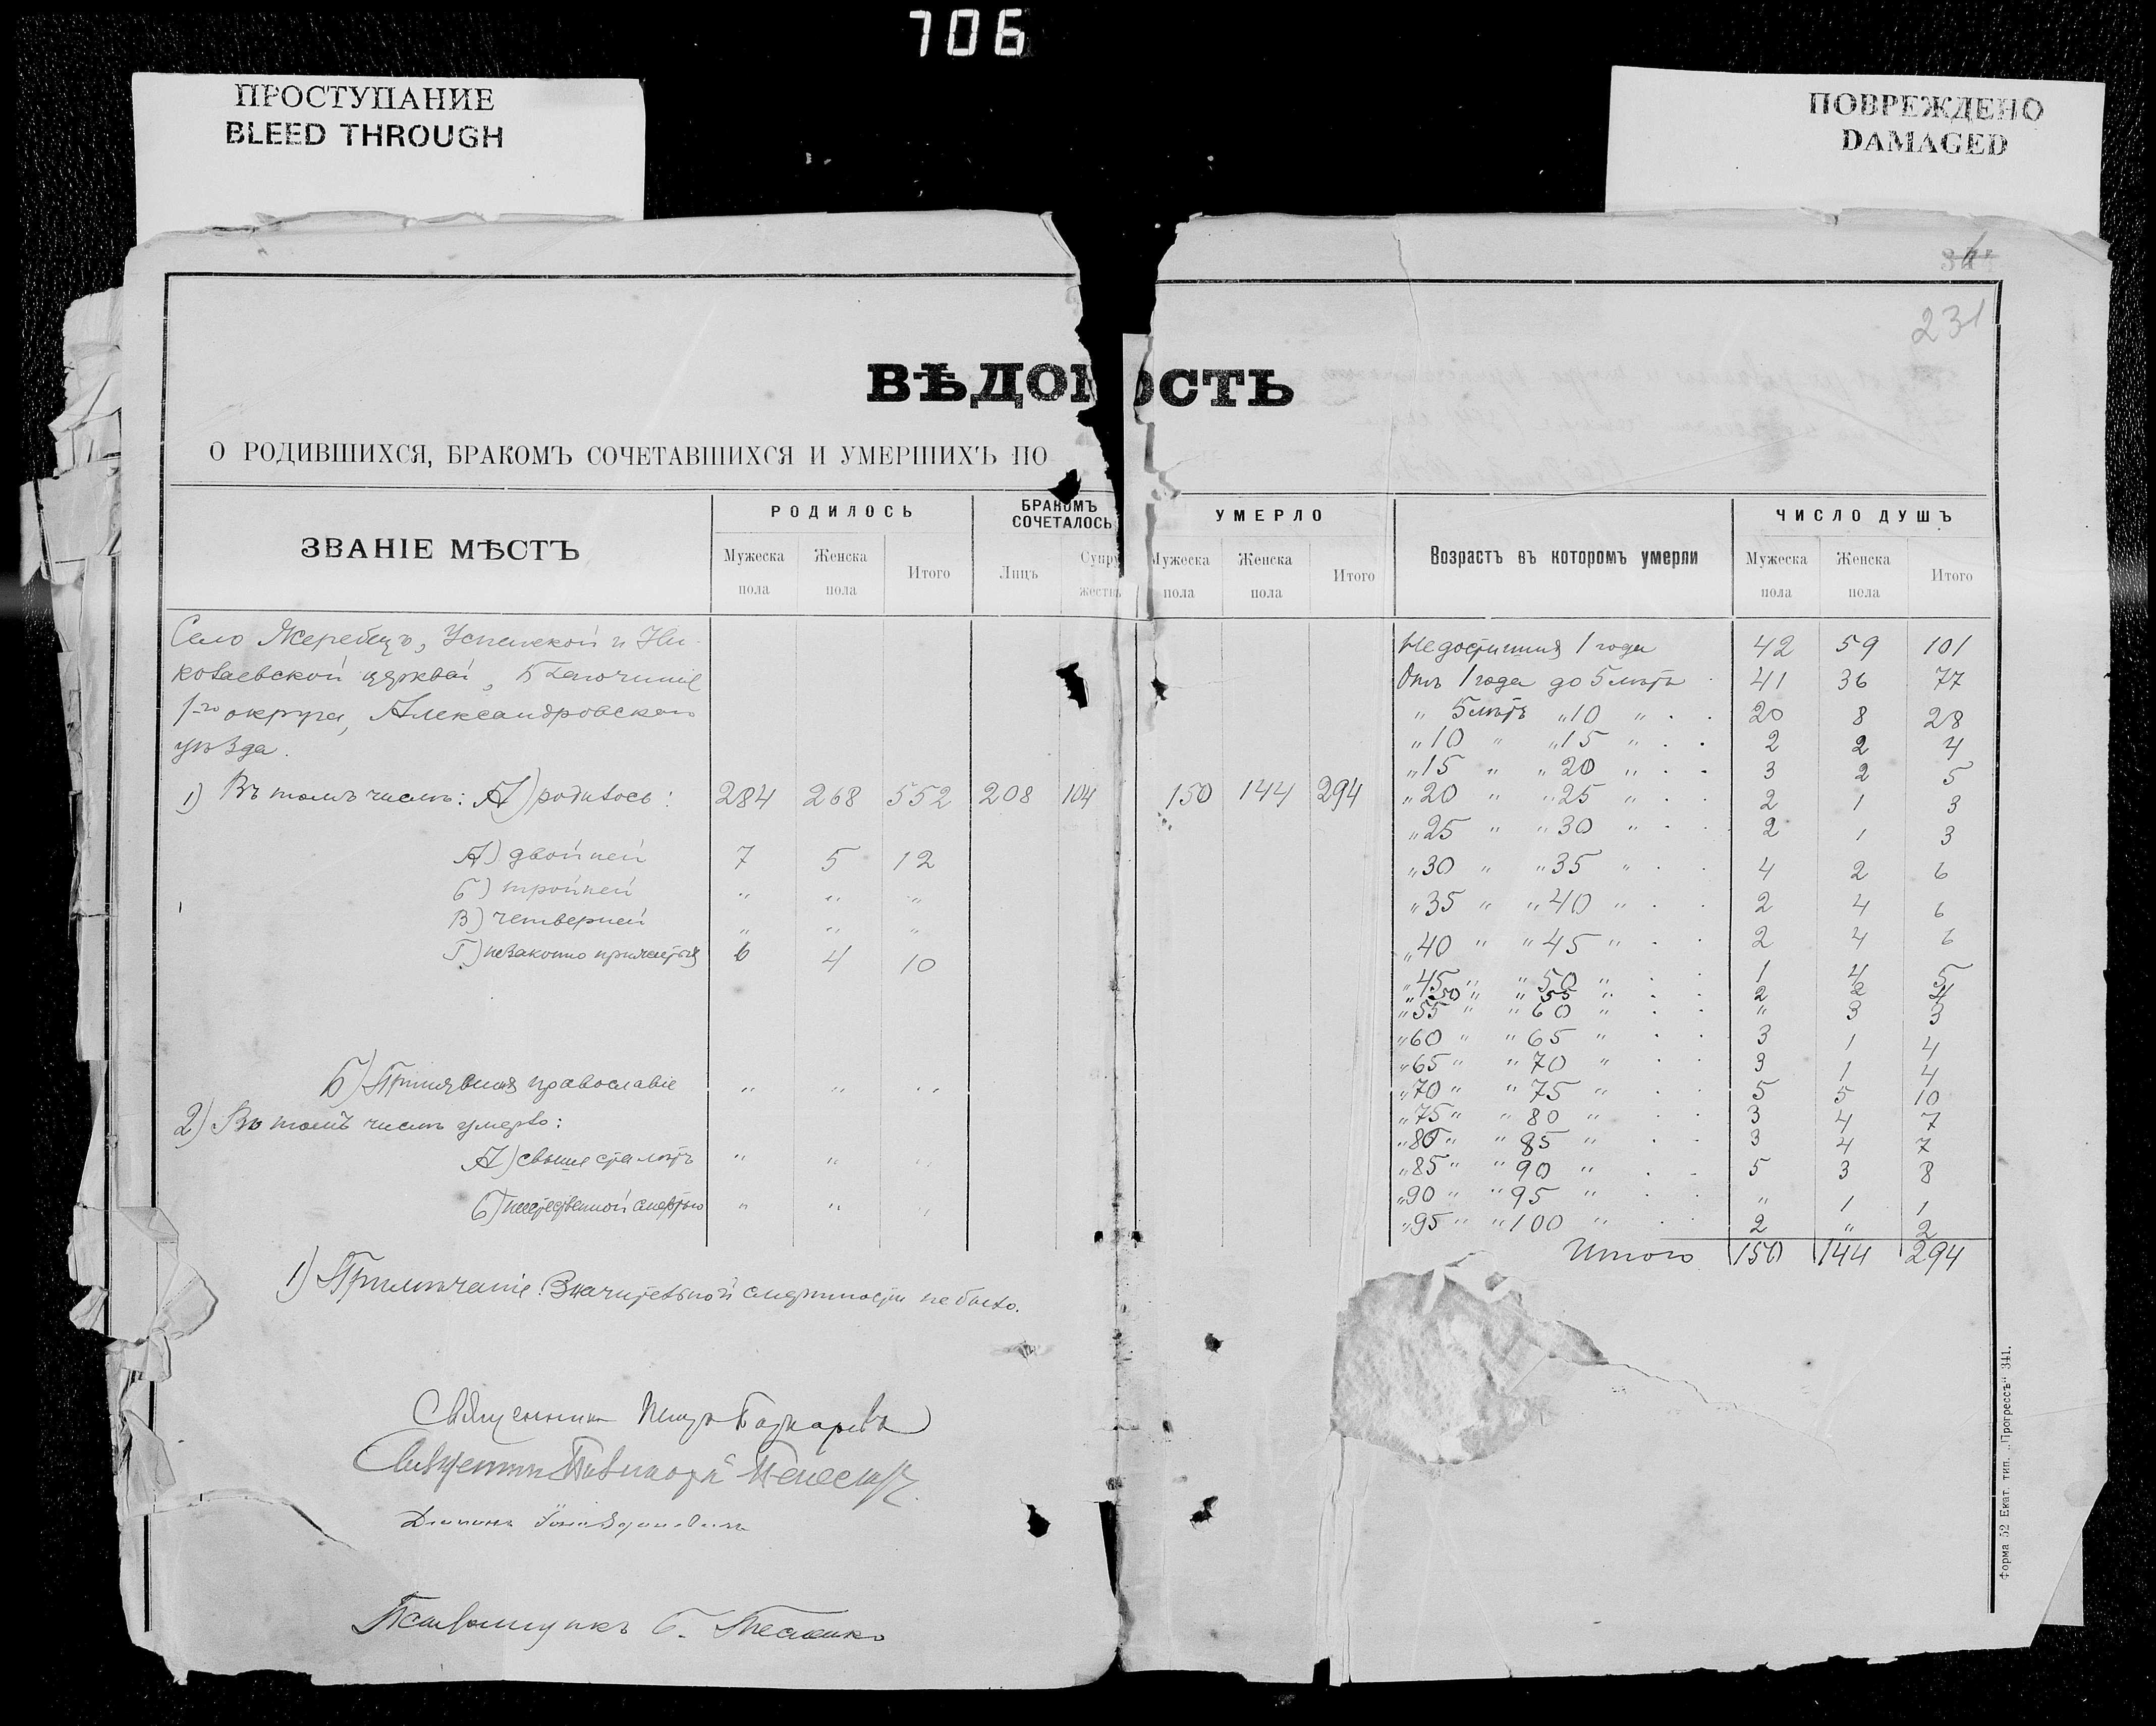 706
ПРОСТУПАНИЕ
BLEED THROUGH
ПОВРЕЖДЕНО
DAMAGED
231
ВѢДОМОСТЬ
О РОДИВШИХСЯ, БРАКОМЪ СОЧЕТАВШИХСЯ И УМЕРШИХЪ ПО
ЗВАНІЕ МѢСТЪ
РОДИЛОСЬ
Мужеска пола
Женска пола
Итого
БРАКОМЪ СОЧЕТАЛОСЬ
Лицъ
Супружествъ
УМЕРЛО
Мужеска пола
Женска пола
Итого
Возрастъ въ которомъ умерли
ЧИСЛО ДУШЪ
Мужеска пола
Женска пола
Итого
Село Жеребецъ, Успенской и Ни-
колаевской церквей, Благочинія
1-го округа, Александровскаго
уѣзда.
1) Въ томъ числѣ: А) родилось: 284 268 552 208 104 150 144 294
А) двойней 7 5 12
Б) тройней " " "
В) четверней " " "
Г) незаконно прижитыхъ 6 4 10
Б) Принявшихъ православіе " " "
2) Въ томъ числѣ умерло:
А) свыше ста лѣтъ " " "
Б) неестественной смертью " " "
Недостигшихъ 1 года 42 59 101
Отъ 1 года до 5 лѣтъ 41 36 77
" 5 лѣтъ " 10 " 20 8 28
" 10 " " 15 " 2 2 4
" 15 " " 20 " 3 2 5
" 20 " " 25 " 2 1 3
" 25 " " 30 " 2 1 3
" 30 " " 35 " 4 2 6
" 35 " " 40 " 2 4 6
" 40 " " 45 " 2 4 6
" 45 " " 50 " 1 4 5
" 50 " " 55 " 2 2 4
" 55 " " 60 " " 3 3
" 60 " " 65 " 3 1 4
" 65 " " 70 " 3 1 4
" 70 " " 75 " 5 5 10
" 75 " " 80 " 3 4 7
" 80 " " 85 " 3 4 7
" 85 " " 90 " 5 3 8
" 90 " " 95 " " 1 1
" 95 " " 100 " 2 " 2
Итого 150 144 294
1) Примѣчаніе: Значительной смертности не было.
Священникъ
Священникъ
Діаконъ
Псаломщикъ
Форма 52 Екат. тип. „Прогрессъ" 341.